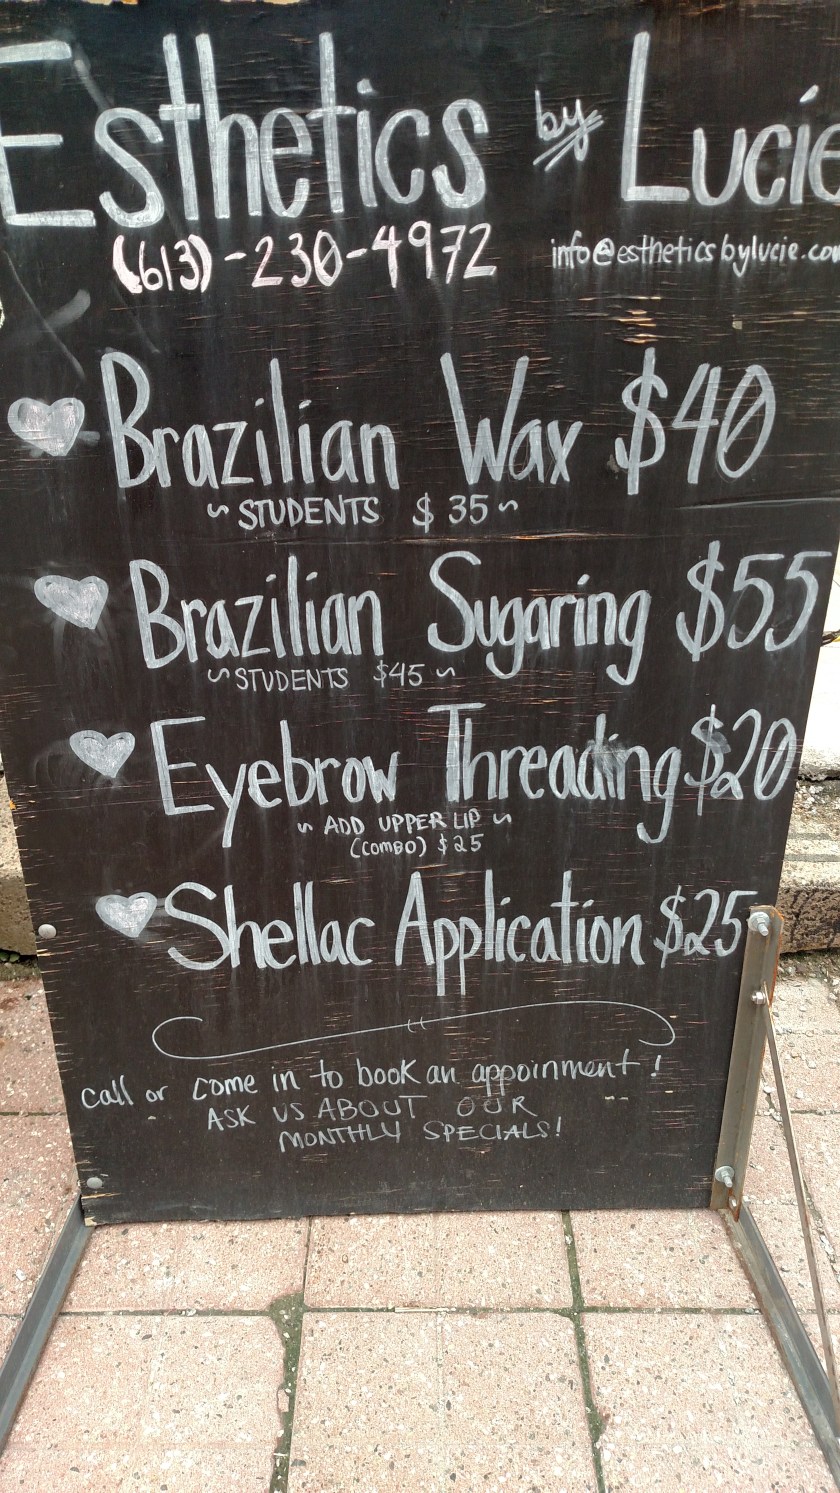 Esthetics by Lucie
(613)-230-4972 info@estheticsbylucie.com
Brazilian Wax $40
~ STUDENTS $35 ~
Brazilian Sugaring $55
~ STUDENTS $45 ~
Eyebrow Threading $20
~ ADD UPPER LIP ~
(COMBO) $25
Shellac Application $25
call or come in to book an appoinment!
ASK US ABOUT OUR
MONTHLY SPECIALS!